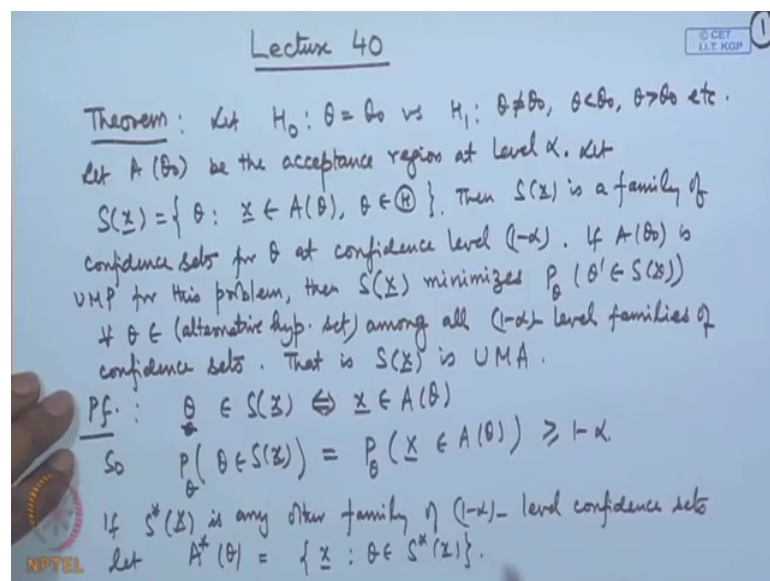 Lecture 40
© CET
I.I.T. KGP
1
Theorem : Let H₀ : θ = θ₀ vs H₁ : θ ≠ θ₀, θ < θ₀, θ > θ₀ etc.
Let A (θ₀) be the acceptance region at level α. Let
S(x̲) = { θ : x̲ ∈ A(θ), θ ∈ Ⓗ }. Then S(x̲) is a family of
confidence sets for θ at confidence level (1-α). If A(θ₀) is
UMP for this problem, then S(x̲) minimizes P_θ (θ' ∈ S(x̲))
∀ θ ∈ (alternative hyp. set) among all (1-α)- level families of
confidence sets. That is S(x̲) is UMA.
Pf. : θ ∈ S(x̲) ⇔ x̲ ∈ A(θ)
So P_θ ( θ ∈ S(x̲)) = P_θ ( X̲ ∈ A(θ)) ≥ 1-α.
If S*(x̲) is any other family of (1-α)- level confidence sets
let A*(θ) = { x̲ : θ ∈ S*(x̲)}.
NPTEL